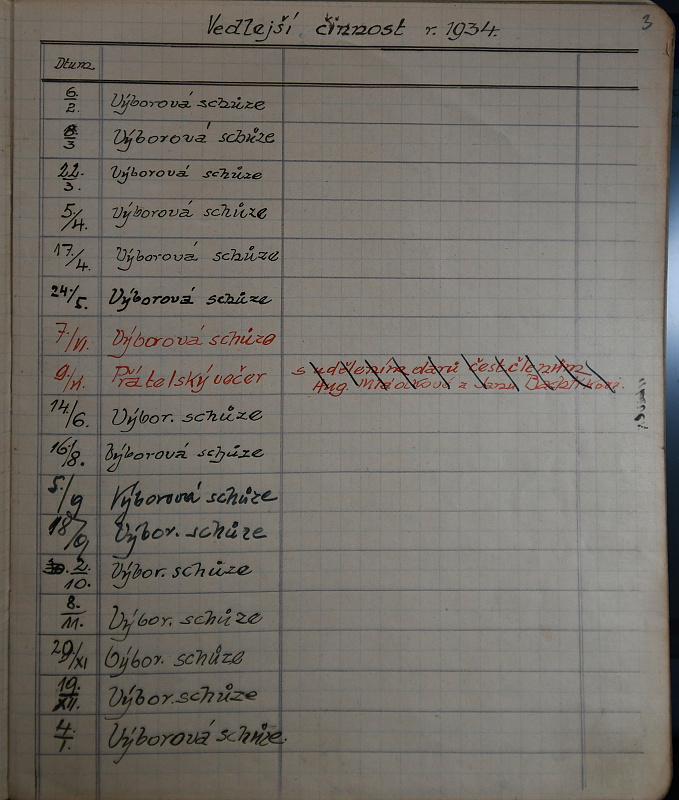 3
Vedlejší činnost r. 1934.
Dtum
6./2. Výborová schůze
8/3 Výborová schůze
22./3. Výborová schůze
5/4. Výborová schůze
17./4. Výborová schůze
24./5. Výborová schůze
7./VI. Výborová schůze
9./VI. Přátelský večer s udělením darů čest. členům
Aug. a Janu
14/6. Výbor. schůze
16/8. Výborová schůze
5./9 Výborová schůze
18/9 Výbor. schůze
2./10. Výbor. schůze
8./11. Výbor. schůze
29/XI Výbor. schůze
19./XII. Výbor. schůze
4/1. Výborová schůze.